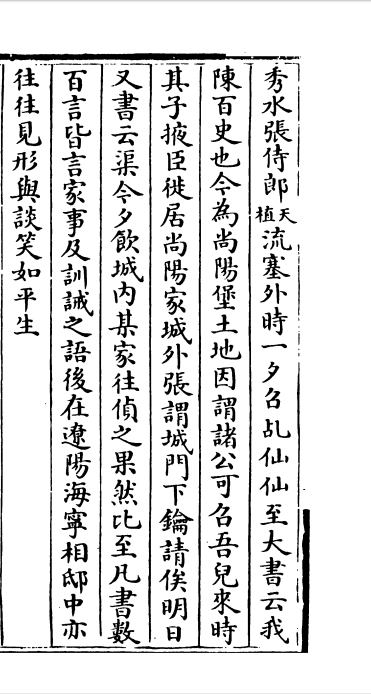 秀水張侍郎天植流塞外時一夕召乩仙仙至大書云我
陳百史也今為尚陽堡土地因謂諸公可召吾兒來時
其子掖臣徙居尚陽家城外張謂城門下鑰請俟明日
又書云渠今夕飲城內某家往偵之果然比至凡書數
百言皆言家事及訓誡之語後在遼陽海寧相邸中亦
往往見形與談笑如平生